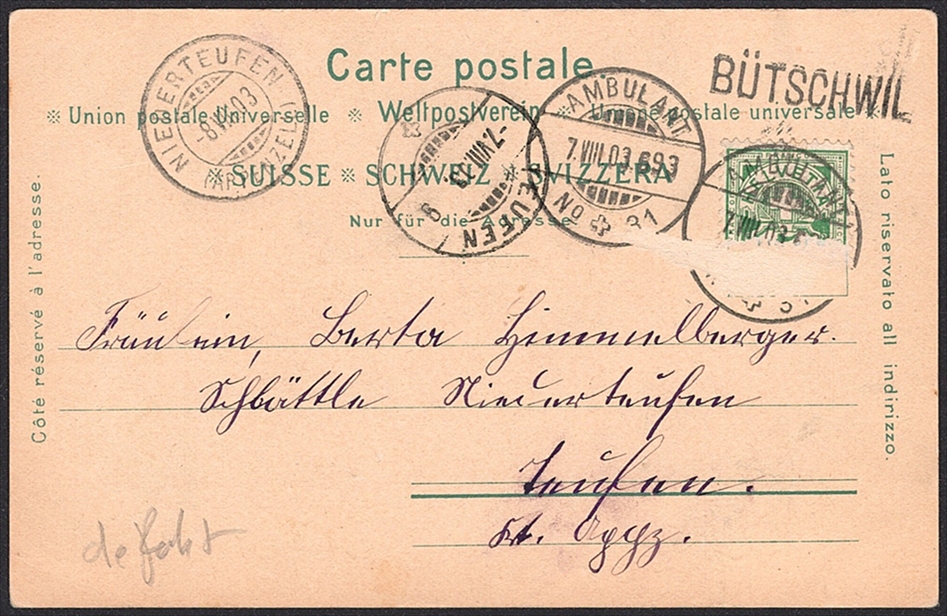 Carte postale
BÜTSCHWIL
※ Union postale universelle ※ Weltpostverein ※ Unione postale universale ※
※ SUISSE ※ SCHWEIZ ※ SVIZZERA
Nur für die Adresse
NIEDERTEUFEN (APPENZELL)
-8.VIII.03
TEUFEN
7.VIII.03
AMBULANT
7.VIII.03 693
No 31
AMBULANT
7.VIII.03
31
Côté réservé à l'adresse.
Lato riservato all indirizzo.
Fräulein, Berta Himmelberger.
Schbättle Niederteufen
Teufen.
Kt. Appz.
defekt